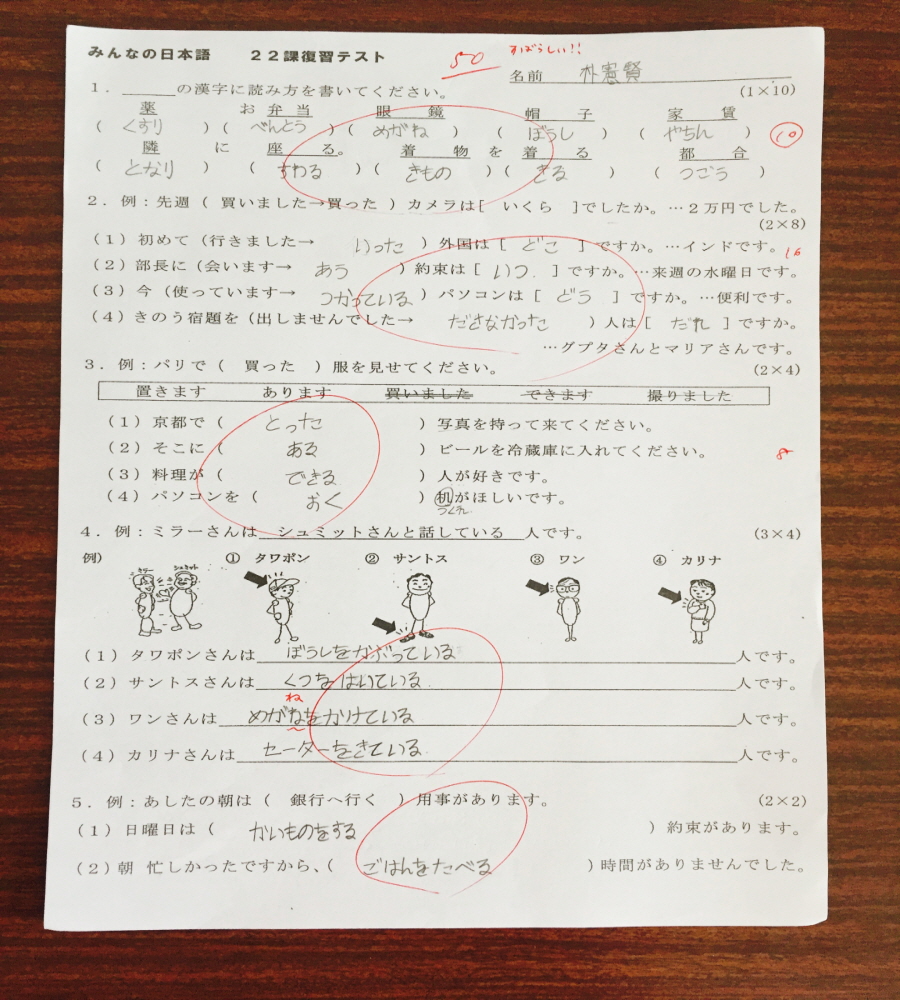 みんなの日本語 22課復習テスト 50 すばらしい!!
名前 朴憲賢
1.＿＿＿の漢字に読み方を書いてください。 (1×10)
薬 お弁当 眼鏡 帽子 家賃
( くすり ) ( べんとう ) ( めがね ) ( ぼうし ) ( やちん ) 10
隣 に 座る。 着物 を 着る 都合
( となり ) ( すわる ) ( きもの ) ( きる ) ( つごう )
2.例:先週( 買いました→買った )カメラは[ いくら ]でしたか。…2万円でした。
(2×8)
(1)初めて(行きました→ いった )外国は[ どこ ]ですか。…インドです。 16
(2)部長に(会います→ あう )約束は[ いつ ]ですか。…来週の水曜日です。
(3)今(使っています→ つかっている )パソコンは[ どう ]ですか。…便利です。
(4)きのう宿題を(出しませんでした→ ださなかった )人は[ だれ ]ですか。
…グプタさんとマリアさんです。
3.例:パリで( 買った )服を見せてください。 (2×4)
置きます あります 買いました できます 撮りました
(1)京都で( とった )写真を持って来てください。
(2)そこに( ある )ビールを冷蔵庫に入れてください。 8
(3)料理が( できる )人が好きです。
(4)パソコンを( おく )机がほしいです。
つくえ
4.例:ミラーさんは シュミットさんと話している 人です。 (3×4)
例) ① タワポン ② サントス ③ ワン ④ カリナ
ミラー シュミット
(1)タワポンさんは ぼうしをかぶっている 人です。
(2)サントスさんは くつをはいている 人です。
ね
(3)ワンさんは めがねをかけている 人です。
(4)カリナさんは セーターをきている 人です。
5.例:あしたの朝は( 銀行へ行く )用事があります。 (2×2)
(1)日曜日は( かいものをする )約束があります。
(2)朝 忙しかったですから、( ごはんをたべる )時間がありませんでした。